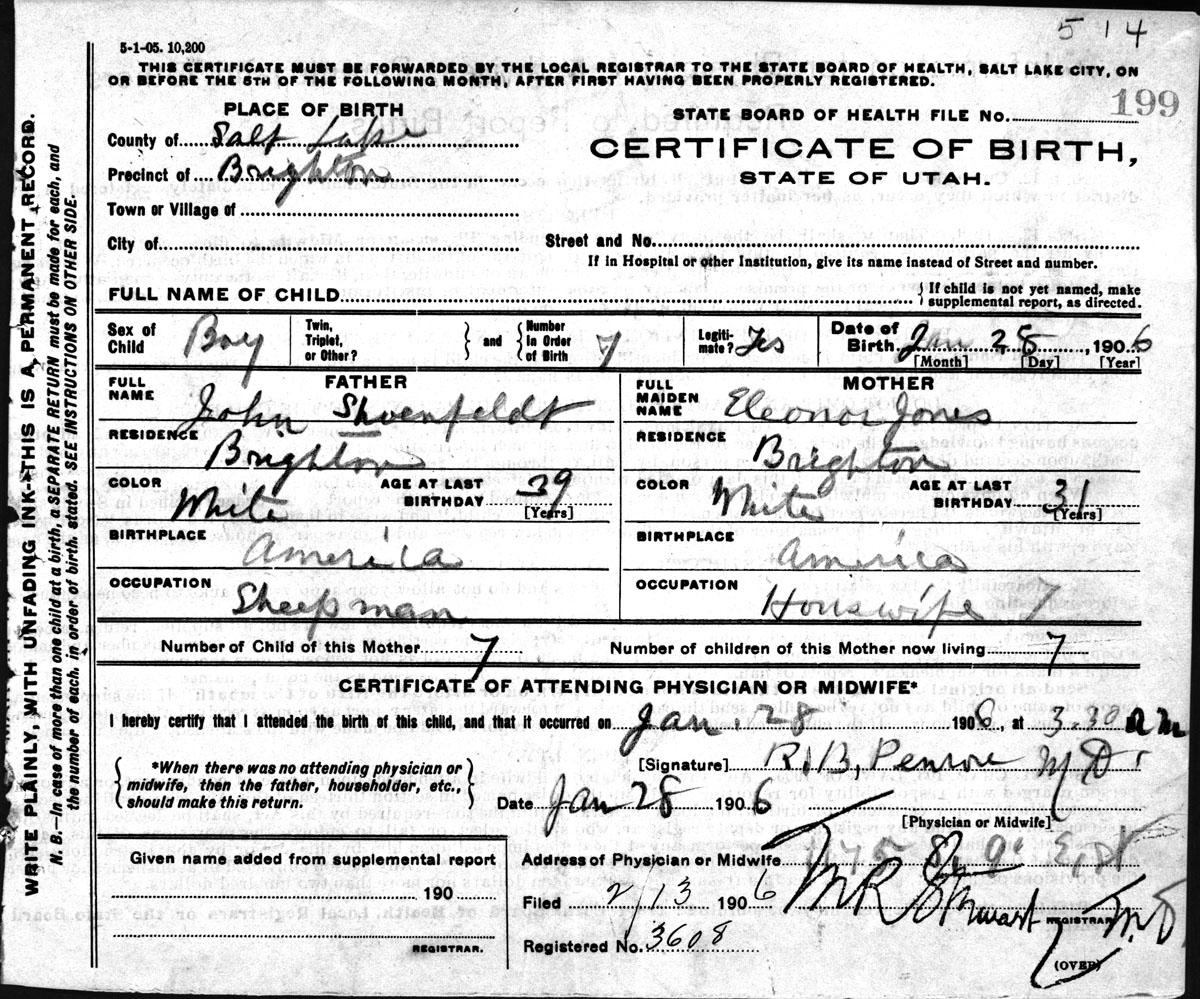 514
5-1-05. 10,200
THIS CERTIFICATE MUST BE FORWARDED BY THE LOCAL REGISTRAR TO THE STATE BOARD OF HEALTH, SALT LAKE CITY, ON
OR BEFORE THE 5TH OF THE FOLLOWING MONTH, AFTER FIRST HAVING BEEN PROPERLY REGISTERED.
PLACE OF BIRTH
STATE BOARD OF HEALTH FILE No. 199
County of Salt Lake
CERTIFICATE OF BIRTH,
Precinct of Brighton
STATE OF UTAH.
Town or Village of
City of Street and No.
If in Hospital or other Institution, give its name instead of Street and number.
FULL NAME OF CHILD { If child is not yet named, make
supplemental report, as directed.
Sex of Child Boy Twin, Triplet, or Other? } and { Number in Order of Birth 7 Legiti-mate? Yes Date of Birth Jan 28, 1906
[Month] [Day] [Year]
FATHER
FULL NAME John Shoenfeldt
RESIDENCE Brighton
COLOR White AGE AT LAST BIRTHDAY 39 [Years]
BIRTHPLACE America
OCCUPATION Sheepman
MOTHER
FULL MAIDEN NAME Eleonor Jones
RESIDENCE Brighton
COLOR White AGE AT LAST BIRTHDAY 31 [Years]
BIRTHPLACE America
OCCUPATION Houswife
Number of Child of this Mother 7 Number of children of this Mother now living 7
CERTIFICATE OF ATTENDING PHYSICIAN OR MIDWIFE*
I hereby certify that I attended the birth of this child, and that it occurred on Jan. 28 1906, at 3.30 a m
[Signature] R. B. Penrose M D.
{ *When there was no attending physician or
midwife, then the father, householder, etc.,
should make this return. }
Date Jan 28 1906
[Physician or Midwife]
Given name added from supplemental report
190
REGISTRAR.
Address of Physician or Midwife
Filed 2/13 1906 M R Stewart M.D
REGISTRAR.
Registered No. 3608
(OVER)
WRITE PLAINLY, WITH UNFADING INK-THIS IS A PERMANENT RECORD.
N. B.—In case of more than one child at a birth, a SEPARATE RETURN must be made for each, and
the number of each, in order of birth, stated. SEE INSTRUCTIONS ON OTHER SIDE.